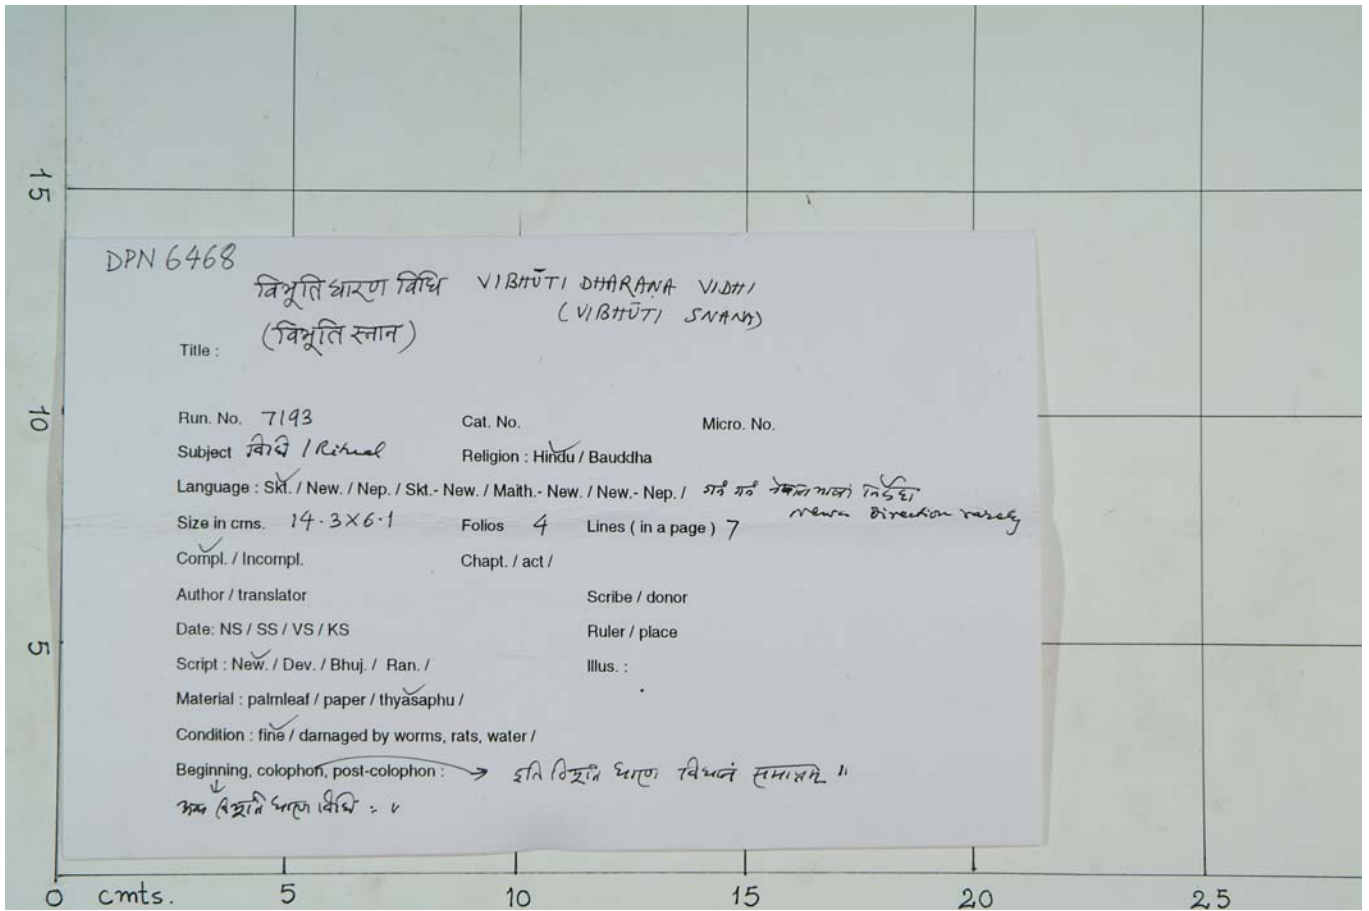 15
DPN 6468
विभूति धारण विधि VIBHŪTI DHĀRAṆA VIDHI
(विभूति स्नान) (VIBHŪTI SNANA)
Title :
10
Run. No. 7193 Cat. No. Micro. No.
Subject विधि / Ritual Religion : Hindu / Bauddha
Language : Skt. / New. / Nep. / Skt.- New. / Maith.- New. / New.- Nep. /
Newa Direction rarely
Size in cms. 14.3×6.1 Folios 4 Lines ( in a page ) 7
Compl. / Incompl. Chapt. / act /
Author / translator Scribe / donor
Date: NS / SS / VS / KS Ruler / place
5
Script : New. / Dev. / Bhuj. / Ran. / Illus. :
Material : palmleaf / paper / thyasaphu /
Condition : fine / damaged by worms, rats, water /
Beginning, colophon, post-colophon : → इति विभूति धारण विधानं समाप्तम् ॥
अथ विभूति धारण विधि : ॥
0 cmts. 5 10 15 20 25